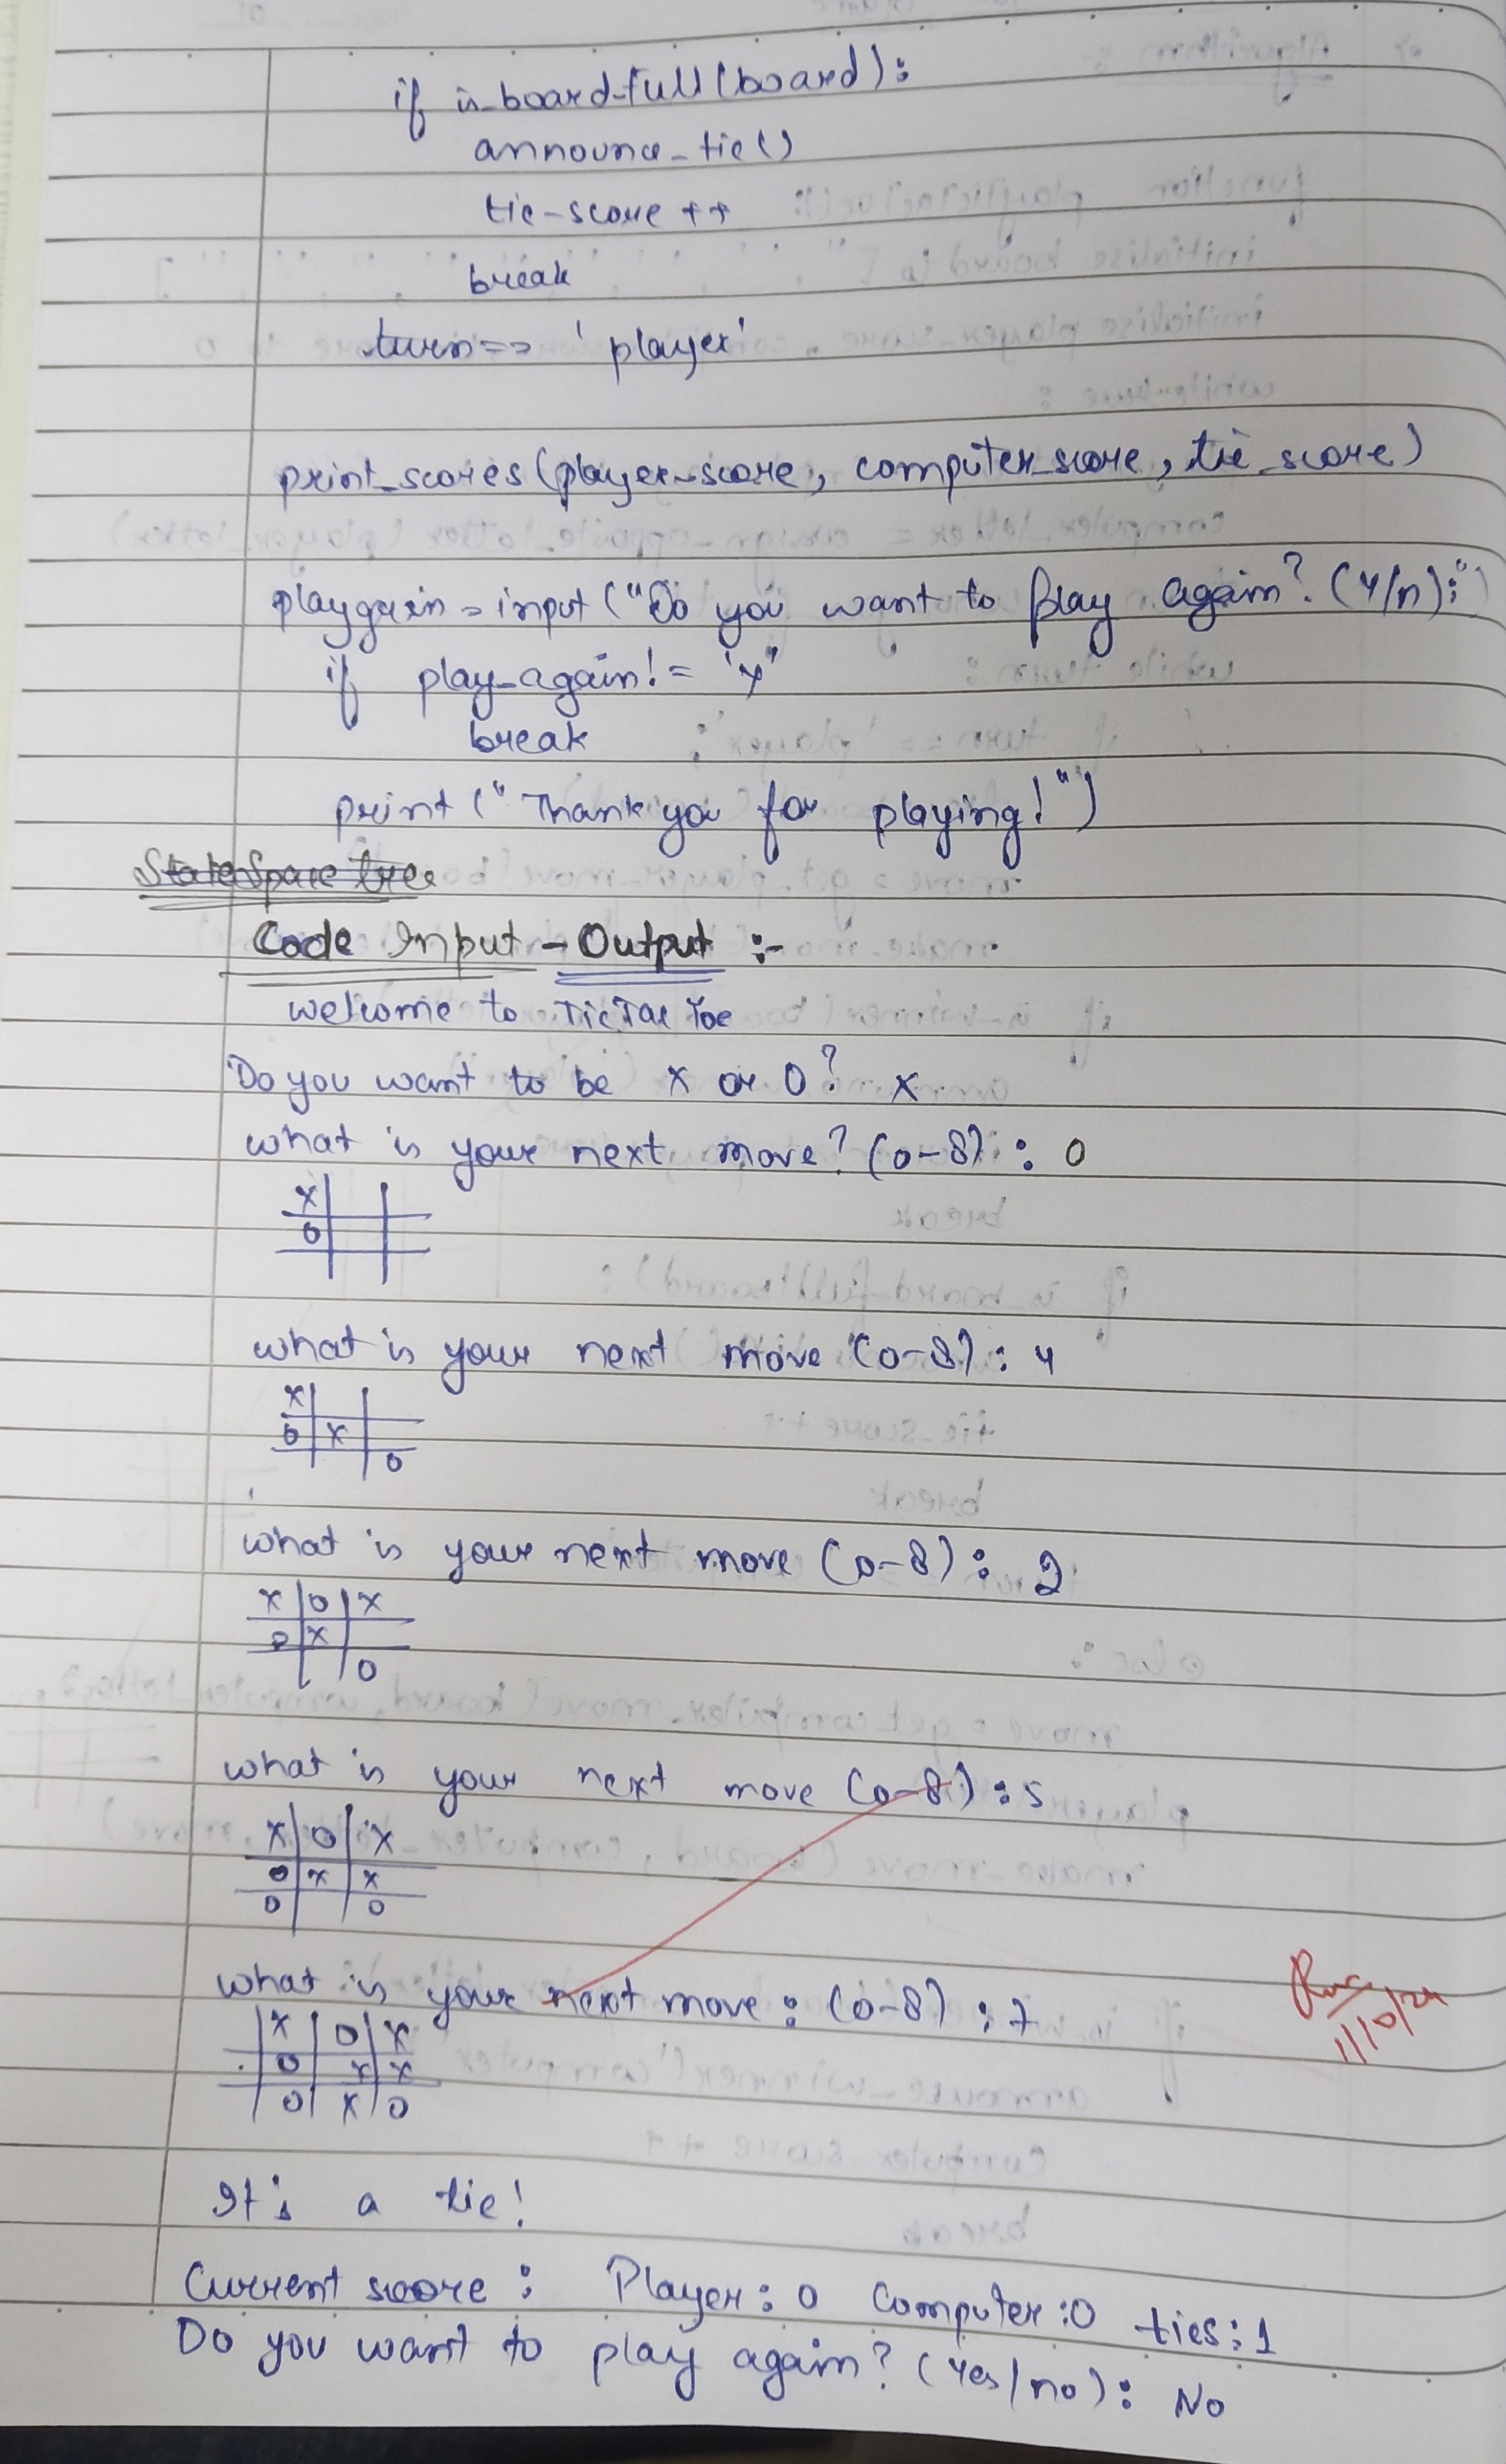 if is_board_full(board):
announce_tie()
tie-score ++
break
turn == 'player'
print_scores(player_score, computer_score, tie_score)
playgain = input ("Do you want to play again? (Y/n):")
if play_again! = 'y'
break
print ("Thank you for playing!")
State Space tree
Code Input - Output :-
Welcome to TicTac Toe
Do you want to be X or O? X
What is your next move? (0-8) : 0
X
O
What is your next move (0-8) : 4
X
O X
O
What is your next move (0-8) : 2
X O X
O X
O
What is your next move (0-8) : 5
X O X
O X X
O O
What is your next move : (0-8) : 7
X O X
O X X
O X O
It's a tie!
Current score : Player : 0 Computer : 0 ties : 1
Do you want to play again? (Yes/no) : No
1/10/24